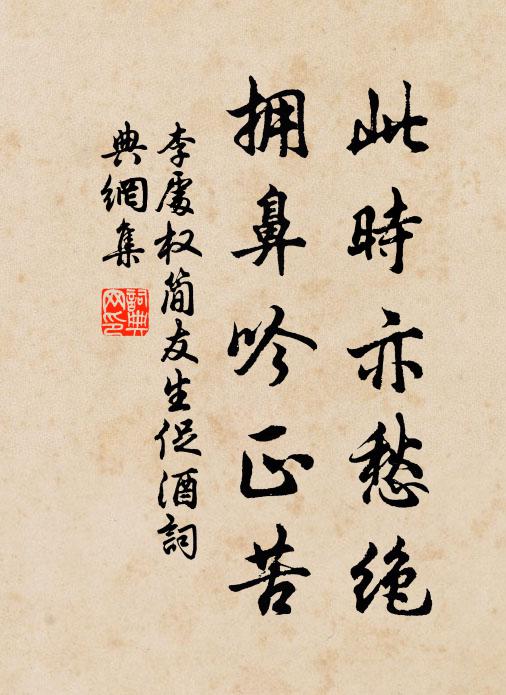 此時亦愁絶
拥鼻吟正苦
李處权简友生促酒詞
典網集
詞典
网印